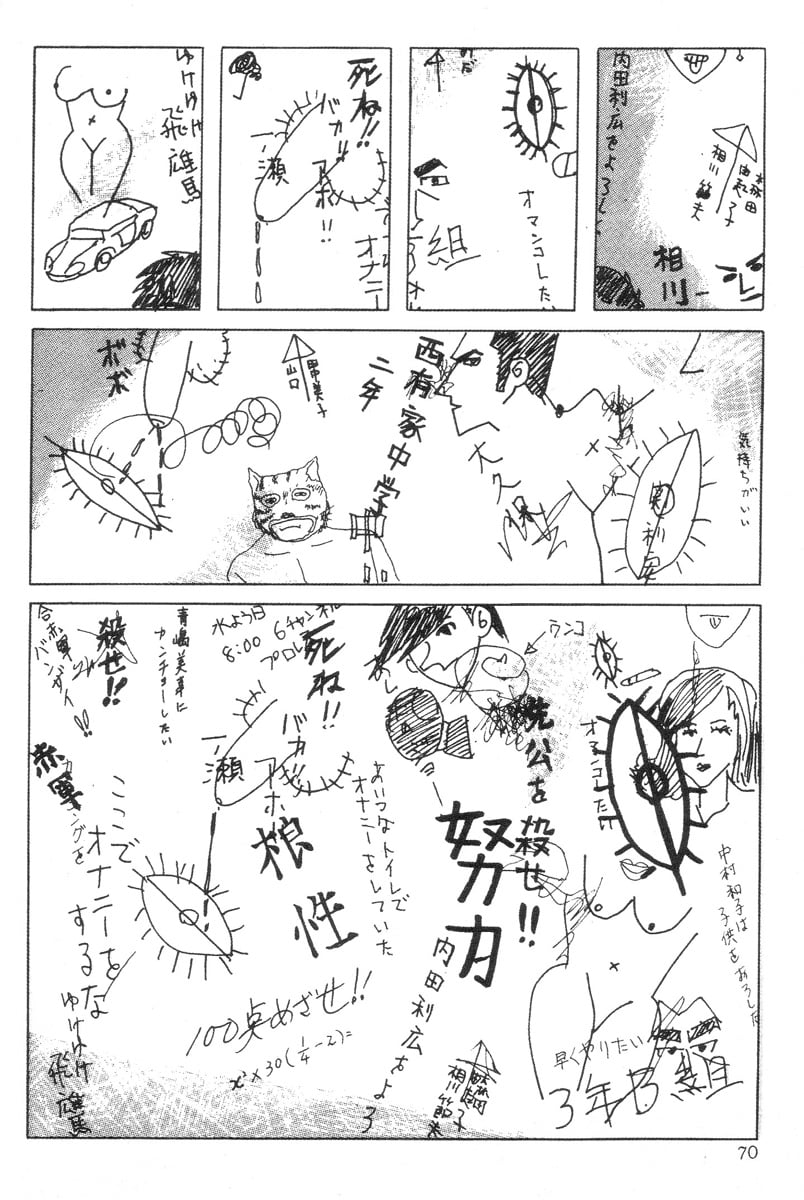 内田利広をよろし
相川節夫
相川
みだ
オマンコしたい
組
死ね!!
バカ!!
アホ!!
一ノ瀬
で
オナニー
ゆけゆけ
飛雄馬
気持ちがいい
大久保
西有家中学
二年
山口
ボボ
ウンコ
オマンコしたい
中村和子は
子供をおろした
早くやりたい
3年B組
先公を殺せ!!
努力
内田利広をよろ
相川節夫
あいつなトイレで
オナニーをしていた
水よう日
8:00
6チャンネル
プロレ
死ね!!
バカ!!
アホ
一ノ瀬
根性
100点めざせ!!
x²×30(1/4-2)=
カンチョーしたい
殺せ!!
バンザイ!!
ここで
オナニーを
するな
ゆけゆけ
飛雄馬
70